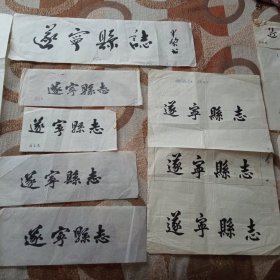 遂寧縣誌
遂寧縣志
遂寧縣志
遂寧縣志
遂寧縣志
遂寧縣志
遂寧縣志
遂寧縣志